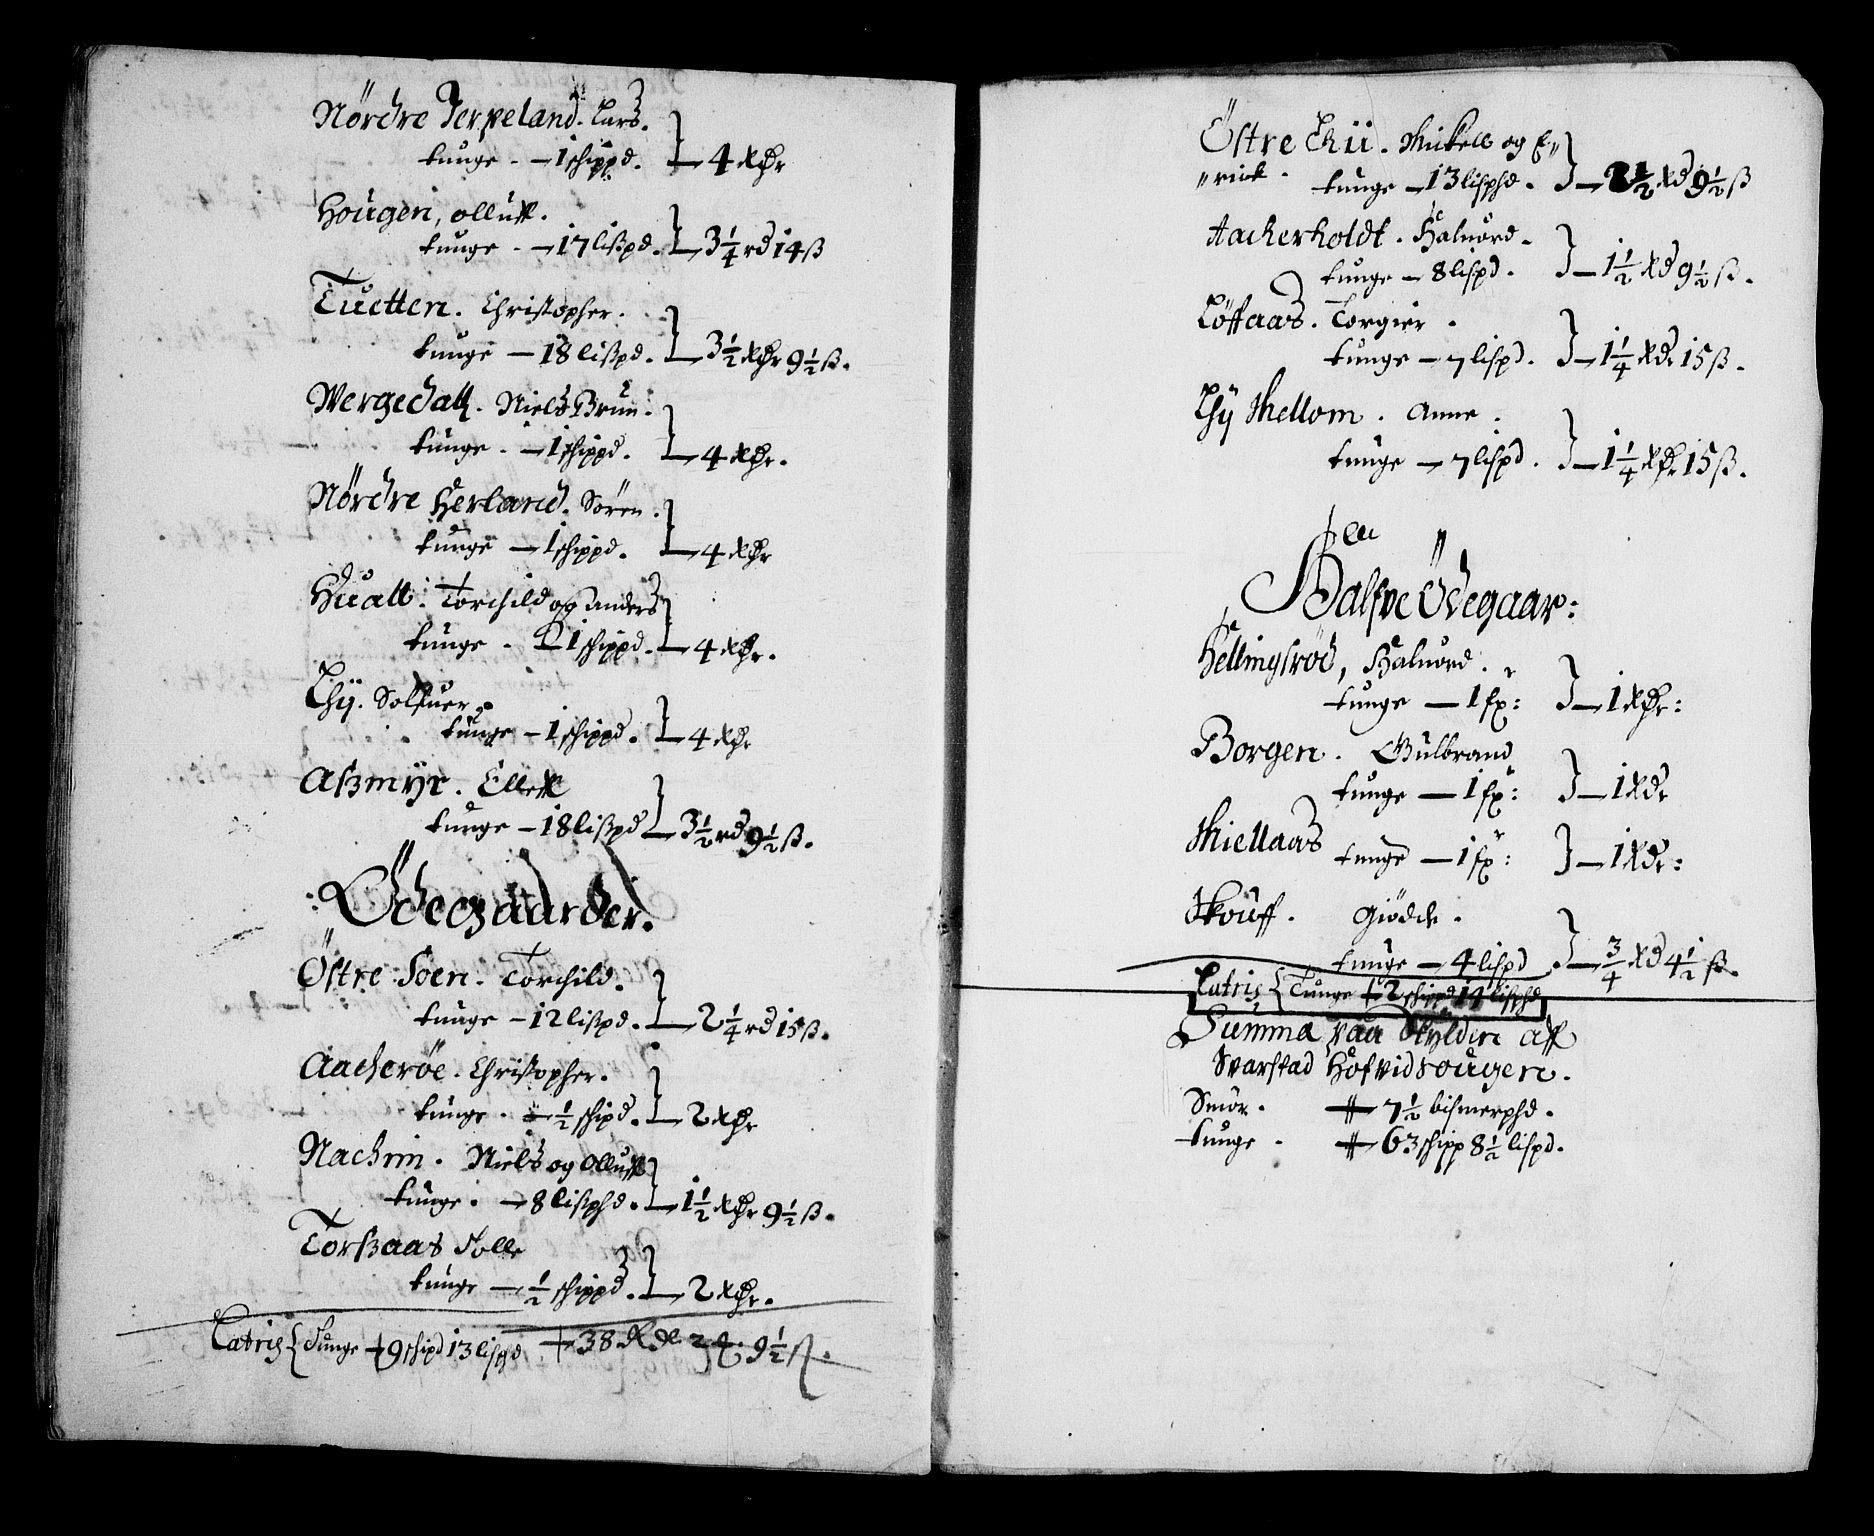 Nördre Terpeland. Lars.
tunge - 1 schippd. - 4 Rdr
Hougen, olluff.
tunge - 17 lißpd. - 3 1/4 rd 14 ß
Tuetten. Christopher.
tunge - 18 lißpd. - 3 1/2 Rdr 9 1/2 ß.
Wergedall. Niels Brun.
tunge - 1 schippd. - 4 Rdr.
Nördre Herland. Sören.
tunge - 1 schippd. - 4 Rdr
Huall. Torchild og Anders
tunge - 1 schippd. - 4 Rdr.
Lhy. Solfuer.
tunge - 1 schippd. - 4 Rdr
Aßmyr. Elleff
tunge - 18 lißpd - 3 1/2 rd 9 1/2 ß.
Ödegaarder.
Östre Soen. Torchild.
tunge - 12 lißpd. - 2 1/4 rd 15 ß.
Aacheröe. Christopher.
tunge - 1/2 schipd. - 2 Rdr
Nachim. Niels og olluff
tunge - 8 lißphd. - 1 1/2 Rdr 9 1/2 ß.
Torßaas Tolle
tunge - 1/2 schippd. - 2 Rdr.
Latris { Tunge 9 schipd 13 lispd 38 Rdl 9 1/2 ß.
Östre Lhii. Mickell og E„
„rick. tunge - 13 lisphd. - 2 1/2 Rd 9 1/2 ß
Aackerholdt. Haluord.
tunge - 8 lispd. - 1 1/2 Rd 9 1/2 ß.
Löffaas. Torgier.
tunge - 7 lispd. - 1 1/4 Rdr 15 ß.
Lhy Mellom. Anne.
tunge - 7 lispd. - 1 1/4 Rdr 15 ß.
Halfve Ödegaar:
Hellingsröd, Haluord.
tunge - 1 fr: - 1 Rdr:
Borgen. Gulbrand
tunge - 1 fr: - 1 Rdr
Skiellaas
tunge - 1 fr: - 1 Rdr:
Skouff. Giödele.
tunge - 4 lispd - 3/4 Rd 4 1/2 ß.
Latris { Tunge 2 schippd 14 lisphd
Summa paa Skylden aff
Svarstad Hofvidsougen.
Smör. 7 1/2 bismerphd.
tunge - 63 schipp 8 1/2 lispd.